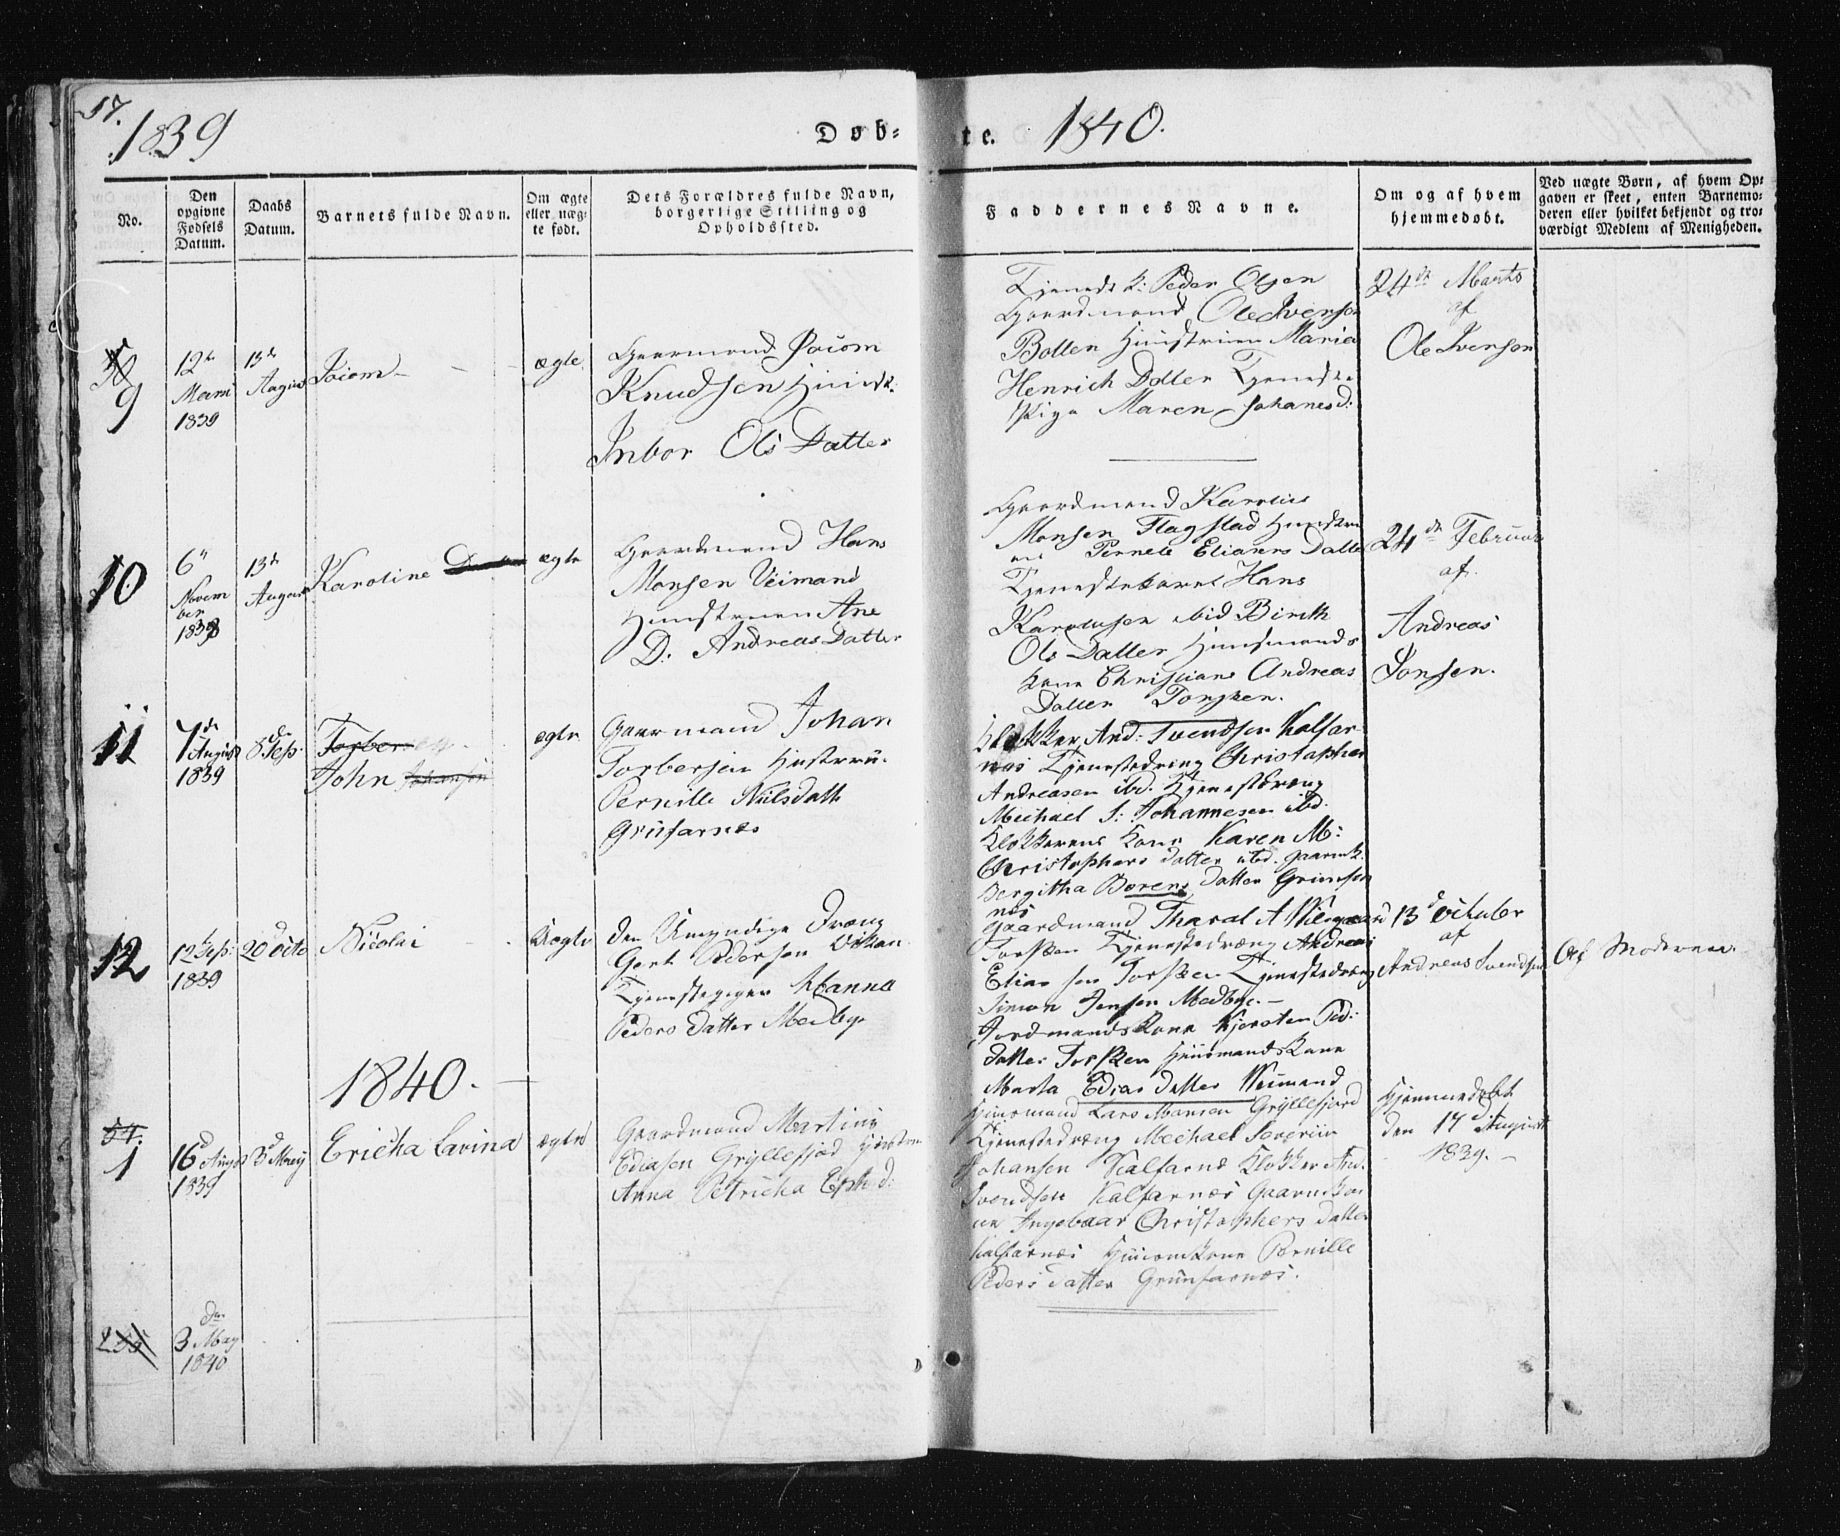 17.
1839
Døb-
te.
1840.
No.
Den
opgivne
Fødsels
Datum.
Daabs
Datum.
Barnets fulde Navn.
Om ægte
eller uæg-
te født.
Dets Forældres fulde Navn,
borgerlige Stilling og
Opholdssted.
Faddernes Navne.
Om og af hvem
hjemmedøbt.
Ved uægte Børn, af hvem Op-
gaven er skeet, enten Barnemo-
deren eller hvilket bekjendt og tro-
værdigt Medlem af Menigheden.
9
12te
1839
13de
August
Joiom
ægte.
Gaarmand Joiom
Knudsen Hustr.
Inbor Ols Datter
Tjenestk: Peder Olsen
Gaardmand Ole Ivensen
Bollen Hustruen Maria
Henrich Datter Tjeneste
Pige Maren Johanes D:
24de Marts
af
Ole Ivensen
10
6te
Novem
ber
1839
13de
August
Karoline
ægte
Gaardmand Hans
Monsen Veimand
Hustruen Ane
D. Andreas Datter
Gaardmand Karolius
Monsen Flagstad Hustru
Pernele Elians Datter
Tjenestekarl Hans
Karolusen ibid Birth
Ols Datter Huusmands
Kone Christiane Andreas
Datter Torsken.
24de Februar
af
Andreas
Jonsen.
11
7de
August
1839
8de Sep.
Torbersen
John Johansen
ægte
Gaarmand Johan
Torbersen Hustru.
Pernille Nilsdatt
Grufarnes
Klokker And: Svendsen Kalfar-
næs Tjenestedreng Christopher
Andreasen ibd. Tjenestdreng
Michael S: Johannesen ibd.
Klokkerens Kone Karen M:
Christophers datter ibd. gaarmk.
Bergitha Børens datter Grunfar
næs
12
12te Sep:
1839
20de Octo
Nicolai
Uægte
Den Umyndige Dreng
Gert Pedersen
Tjenestepigen Hanna
Peders datter Medby.
Gaardmand Tharal A
Torsken Tjenestedreng Andreas
Elias sen Torsken Tjenestedreng
Simon Jensen Medbye.
Jordmands Kone Kjersten Ped:
datter Torsken Huusmands Kone
Marta Edias datter Weimand
13de October
af
Andreas Svendsen
Af Moderen
1840.
1
16de August
1839
3de Maij
Ericka Lavina
ægte
Gaardmand Martinus
Ediasen Gryllefjord Hustru
Anna Petricka Esp: d:
Huusmand Lars Mansen Gryllefjord
Tjenestedreng Mechael Severin
Johansen Kalfarnæs Klokker And.
Svendsen Kalfarnæs Gaarmko
ne Ingebaar Christophers datter
Kalfarnæs Huusmkone Pernille
Peders datter Grunfarnæs.
Hjemmedøbt
den 17de August
1839.
2
den
3 May
1840